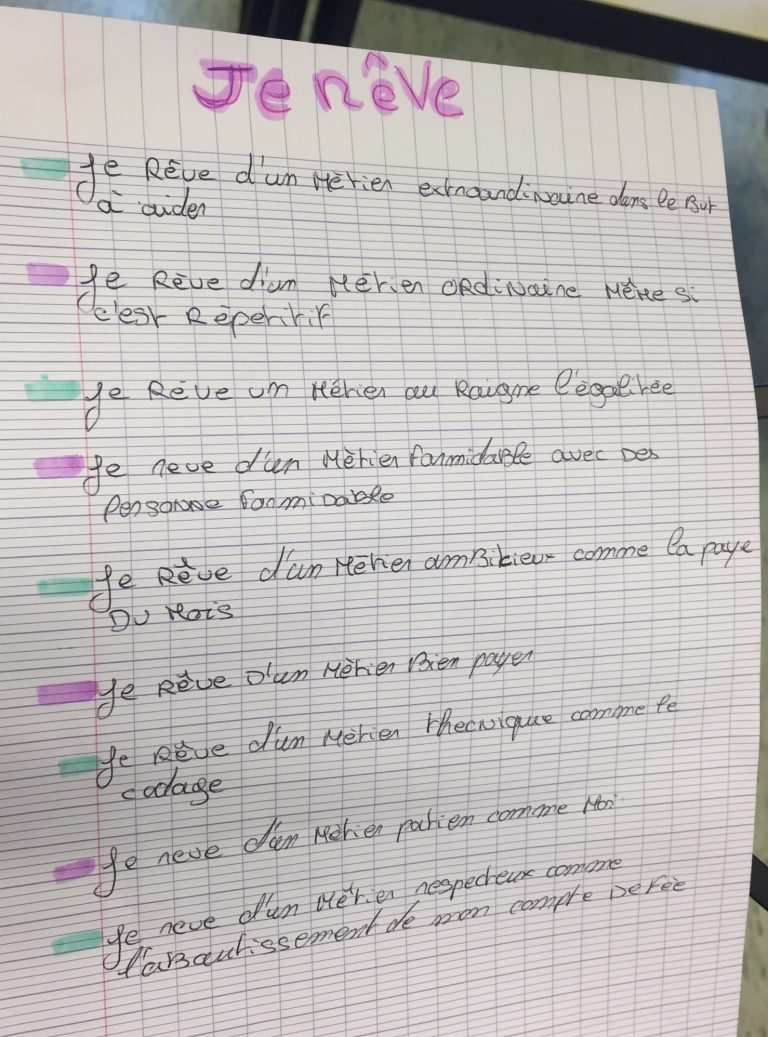 Je rêve
Je Rêve d'un Métier extraordinaire dans le But
à aider
Je Rêve d'un Métier ORdiNaire Même si
c'est Répétitif
Je Rêve un Métier au Raigne l'égalitée
Je reve d'un Métier formidable avec Des
Personne formidable
Je Rêve d'un Métier amBitieux comme la paye
Du Mois
Je Rêve D'un Métier Bien payer
Je Rêve d'un Métier thecnique comme le
codage
Je reve d'un Métier patien comme Moi
Je reve d'un Métier respecteux comme
l'aBoutissement de mon compte De fée